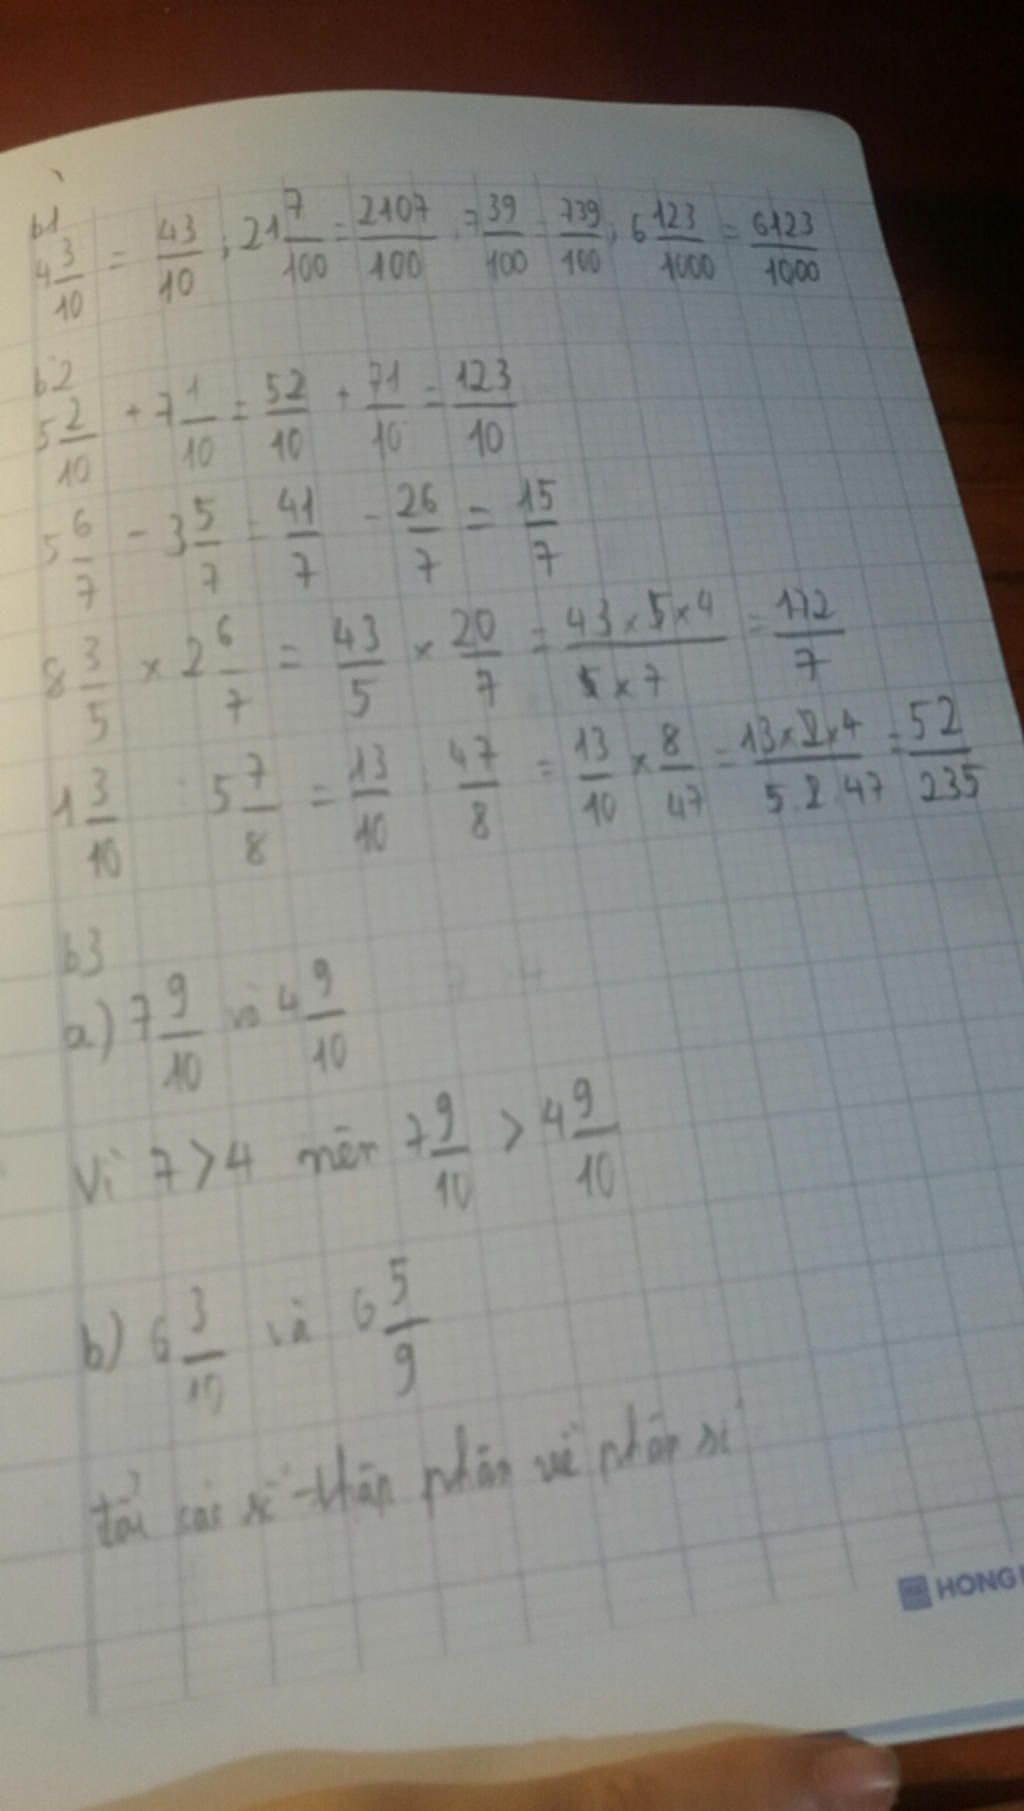 b1
4 3/10 = 43/10 ; 21 7/100 = 2107/100 ; 7 39/100 = 739/100 ; 6 123/1000 = 6123/1000
b2
5 2/10 + 7 1/10 = 52/10 + 71/10 = 123/10
5 6/7 - 3 5/7 = 41/7 - 26/7 = 15/7
8 3/5 × 2 6/7 = 43/5 × 20/7 = 43×5×4/5×7 = 172/7
1 3/10 : 5 7/8 = 13/10 : 47/8 = 13/10 × 8/47 = 13×2×4/5.2.47 = 52/235
b3
a) 7 9/10 và 4 9/10
Vì 7 > 4 nên 7 9/10 > 4 9/10
b) 6 3/10 và 6 5/9
phân về phân số
HONG